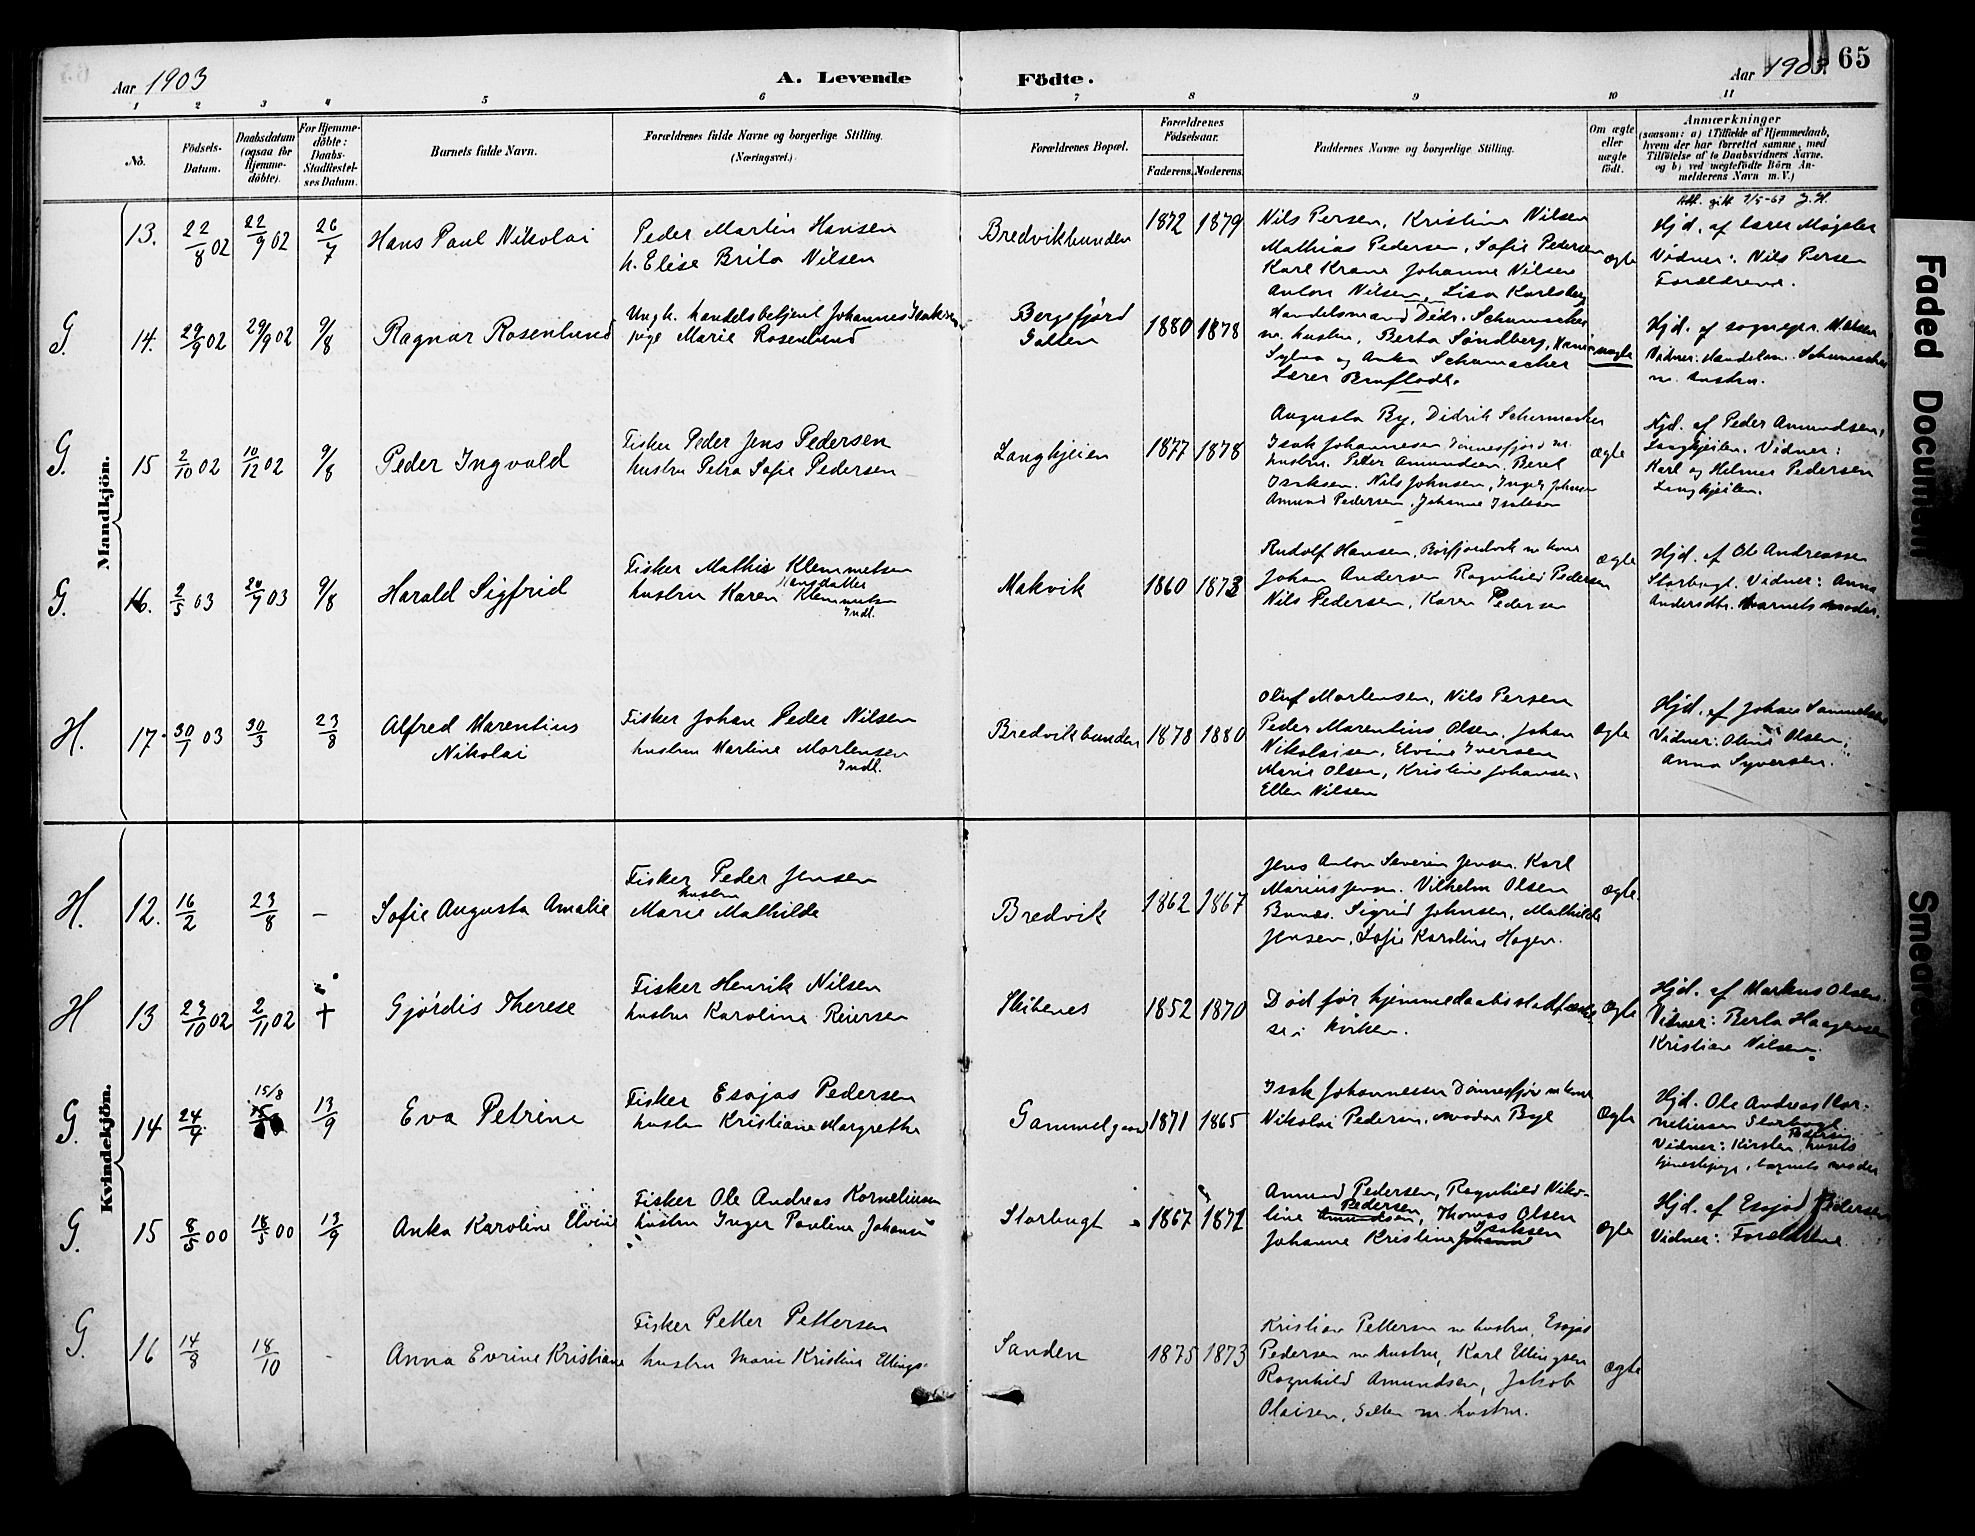 65
Aar 1903
A. Levende Födte.
Aar 1903
1 2 3 4 5 6 7 8 9 10 11
No.
Födsels-
Datum.
Daabsdatum
(ogsaa for
Hjemme-
döbte).
For Hjemme-
döbte:
Daabs-
Stadfæstel-
ses Datum.
Barnets fulde Navn.
Forældrenes fulde Navne og borgerlige Stilling.
(Næringsvei.)
Forældrenes Bopæl.
Forældrenes
Födselsaar.
Faderens. Moderens.
Faddernes Navne og borgerlige Stilling.
Om ægte
eller
uægte
födt.
Anmærkninger
(saasom: a) i Tilfælde af Hjemmedaab,
hvem der har forrettet samme, med
Tilföielse af to Daabsvidners Navne,
og b) ved uegtefödte Börn An-
melderens Navn m.V.)
Mandkjön.
13. 22/8 02 22/9 02 26/7
Hans Paul Nikolai
Peder Martin Hansen
h. Elise Brita Nilsen
Bredvikbunden
1872 1879
Nils Persen, Kristine Nilsen
Mathias Pedersen, Sofie Pedersen
Karl Krane Johanne Nilsen
Anton Nilsen, Lisa Karlsberg
ægte
Hjd. af lærer Møgster
Vidner: Nils Persen
Forældrene.
G. 14. 29/9 02 29/9 02 9/8
Ragnar Rosenlund
Ungk. handelsbetjent Johannes Isaksen
pige Marie Rosenlund
Bergsfjord
Galten
1880 1878
Handelsmand Didr. Schumacher
m. hustru, Berta Søndberg,
Sylva og Anka Schumacher
Lærer Brufladt.
uægte
Hjd. af sognepr.
Vidner: Handelsm. Schumacher
m. hustru.
G. 15 2/10 02 10/12 02 9/8
Peder Ingvald
Fisker Peder Jens Pedersen
hustru Petra Sofie Pedersen
Langkjeien
1877 1878
Augusta By, Didrik Schumacher
Isak Johannesen Tønnesfjord m.
hustru. Peter Amundsen, Beret
Isaksen. Nils Johnsen, Inger Johnsen
Amund Pedersen, Johanne Isaksen
ægte
Hjd. af Peder Amundsen,
Langkjeilen. Vidner:
Karl og Helmer Pedersen
Langkjeilen.
G. 16. 2/5 03 20/7 03 9/8
Harald Sigfrid
Fisker Mathis Klemmetsen
hustru Karen Hansdatter Klemmetsen
Indl.
Makvik
1860 1873
Rudolf Hansen, Børfjordvik m kone
Johan Andersen Ragnhild Pedersen
Nils Pedersen, Karen Pedersen
ægte
Hjd. af Ole Andreassen
Storbugt. Vidner: Anna
Andersdtr. barnets moder.
H. 17. 30/1 03 30/3 23/8
Alfred Marentius
Nikolai
Fisker Johan Peder Nilsen
hustru Martine Mortensen
Indl.
Bredvikbunden
1878 1880
Oluf Mortensen, Nils Persen
Peder Marentius Olsen, Johan
Nikolaisen, Elvine Iversen
Marie Olsen, Kristine Johansen,
Ellen Nilsen
ægte
Hjd. af Johan Sammelsen
Vidner: Oline Olsen,
Anna Syversen.
Kvindekjön.
H. 12. 16/2 23/8 –
Sofie Augusta Amalie
Fisker Peder Jensen
hustru
Marie Mathilde
Bredvik
1862 1867
Jens Anton Severin Jensen. Karl
Marius Jensen. Vilhelm Olsen
Bunæs. Sigrid Johnsen, Mathilde
Jensen, Sofie Karoline Hagen.
ægte
H 13 23/10 02 2/11 02 +
Gjørdis Therese
Fisker Henrik Nilsen
hustru Karoline Reiersen
Skibenes
1852 1870
Død før hjemmedaabsstadfæstel-
se i kirken.
ægte
Hjd. af Markus Olsen.
Vidner: Berta Haagensen
Kristian Nilsen.
G. 14 24/4 15/8 13/9
Eva Petrine
Fisker Esajas Pedersen
hustru Kristiane Margrethe
Gammelgaard
1871 1865
Isak Johannessen Tønnesfjor m kone
Nikolai Pedersen, moder Byl
ægte
Hjd. Ole Andreas Kor-
neliussen Storbugt.
Vidner: Kirsten Pedersen, husets
tjenestepige, barnets moder
G. 15 8/5 00 18/5 00 13/9
Anka Karoline Elvine
Fisker Ole Andreas Korneliussen
hustru Inger Pauline Johansen
Storbugt
1867 1872
Amund Pedersen, Ragnhild Niko-
line Amundsen Pedersen, Thomas Olsen
Johanne Kristine Johanne Isaksen
ægte
Hjd. af Esajas Pedersen
Vidner: Forældrene
G. 16 14/8 18/10 –
Anna Evrine Kristiane
Fisker Petter Pettersen
hustru Marie Kristine Ellings.
Sanden
1875 1873
Kristian Pettersen m hustru, Esajas
Pedersen m hustru, Karl Ellingsen
Ragnhild Amundsen, Jakob
Olaisen, Galten m. hustru.
ægte
Faded Document
Smeared